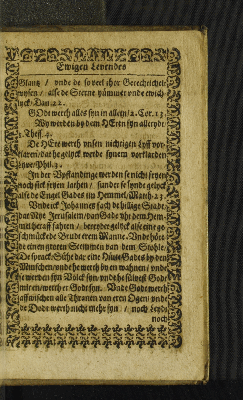 Ewigen Levendes
Glantz / unde de so veel ther Gerechticheit
wysen / alse de Sterne ümmer unde ewich-
lyck / Dan. 12.
GOdt werth alles syn in allen / 1. Cor. 15
Wy werden by dem HEren syn alle tydt
1. Thess. 4.
De HEre werth unsen nichtigen lyff vor-
klaren / dat he gelyck werde synem vorklarden
lyve / Phil. 3.
In der Upstandinge werden se nicht fryen
noch sick fryen lathen / sunder se synde gelyck
alse de Engel Gades im Hemmel / Matth. 22
Unde ick Johannes sach de hillige Stadt /
dat Nye Jerusalem / van Gade uth dem Hem-
mel heraff fahren / bereidet gelyck alse eine ge-
schmückede Brudt erem Manne. Unde hörde
eine grote Stemme van dem Stohle /
De sprack: Süh dar eine Hütte Gades by den
Minschen / unde he werth by en wahnen / unde
se werden syn Volck syn / unde he sülvest Godt
mit en / werth er Godt syn. Unde Godt werth
aff wischen alle Thranen van eren Ogen / unde
de Dodt werth nicht mehr syn / noch Leydt
noch